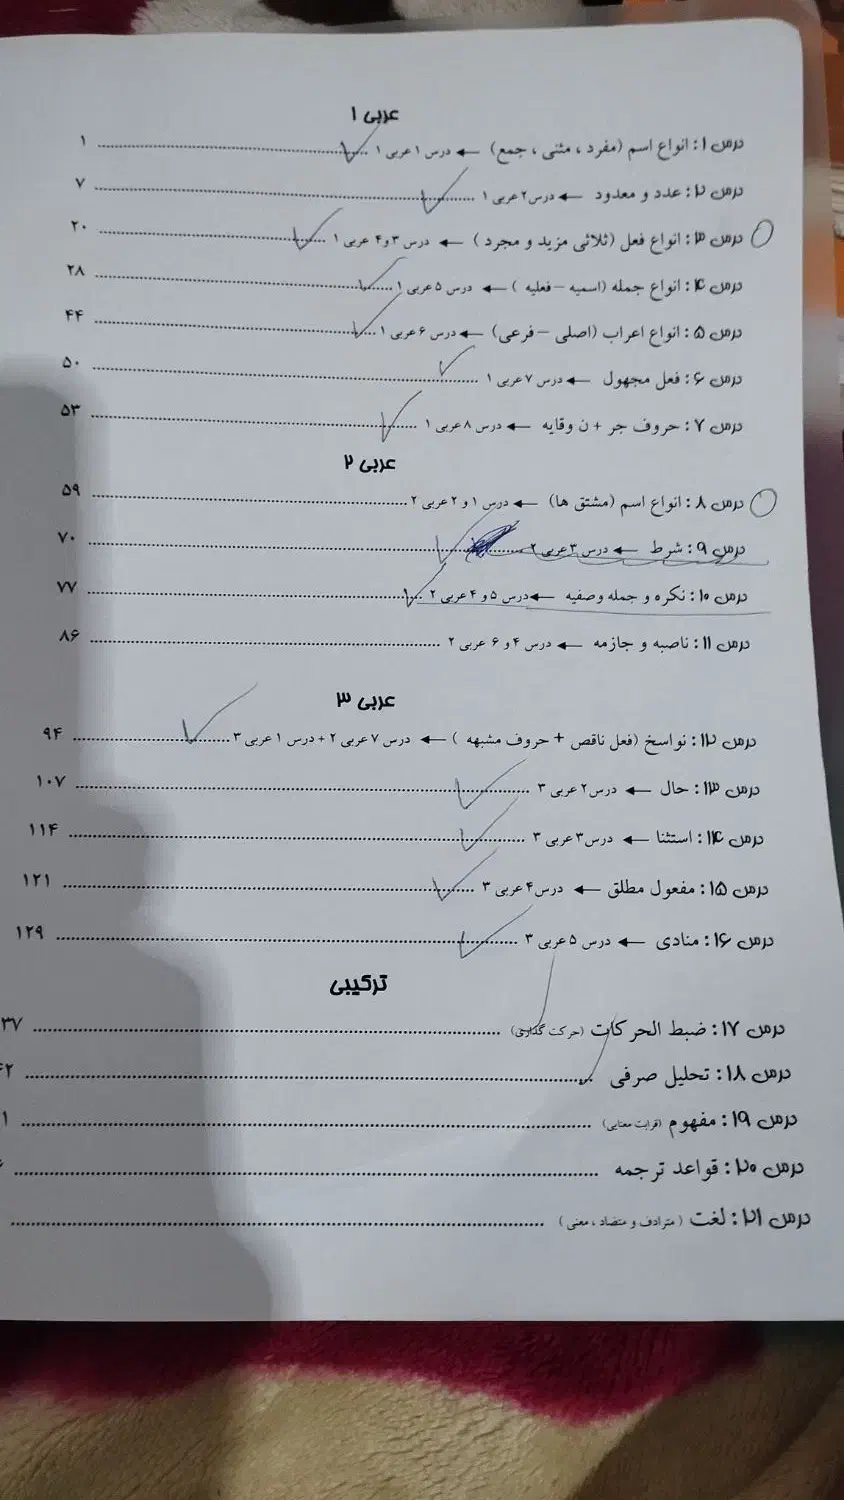 عربی ۱
درس ۱: انواع اسم (مفرد، مثنی، جمع) ← درس ۱ عربی ۱ ........ ۱
درس ۲: عدد و معدود ← درس ۲ عربی ۱ ........ ۷
درس ۳: انواع فعل (ثلاثی مزید و مجرد) ← درس ۳ و ۴ عربی ۱ ........ ۲۰
درس ۴: انواع جمله (اسمیه – فعلیه) ← درس ۵ عربی ۱ ........ ۲۸
درس ۵: انواع اعراب (اصلی – فرعی) ← درس ۶ عربی ۱ ........ ۴۴
درس ۶: فعل مجهول ← درس ۷ عربی ۱ ........ ۵۰
درس ۷: حروف جر + ن وقایه ← درس ۸ عربی ۱ ........ ۵۳
عربی ۲
درس ۸: انواع اسم (مشتق ها) ← درس ۱ و ۲ عربی ۲ ........ ۵۹
درس ۹: شرط ← درس ۳ عربی ۲ ........ ۷۰
درس ۱۰: نکره و جمله وصفیه ← درس ۵ و ۴ عربی ۲ ........ ۷۷
درس ۱۱: ناصبه و جازمه ← درس ۴ و ۶ عربی ۲ ........ ۸۶
عربی ۳
درس ۱۲: نواسخ (فعل ناقص + حروف مشبهه) ← درس ۷ عربی ۲ + درس ۱ عربی ۳ ........ ۹۴
درس ۱۳: حال ← درس ۲ عربی ۳ ........ ۱۰۷
درس ۱۴: استثنا ← درس ۳ عربی ۳ ........ ۱۱۴
درس ۱۵: مفعول مطلق ← درس ۴ عربی ۳ ........ ۱۲۱
درس ۱۶: منادی ← درس ۵ عربی ۳ ........ ۱۲۹
ترکیبی
درس ۱۷: ضبط الحرکات (حرکت گذاری) ........ ۳۷
درس ۱۸: تحلیل صرفی ........ ۴۲
درس ۱۹: مفهوم (قرابت معنایی) ........ ۱
درس ۲۰: قواعد ترجمه ........
درس ۲۱: لغت (مترادف و متضاد، معنی) ........